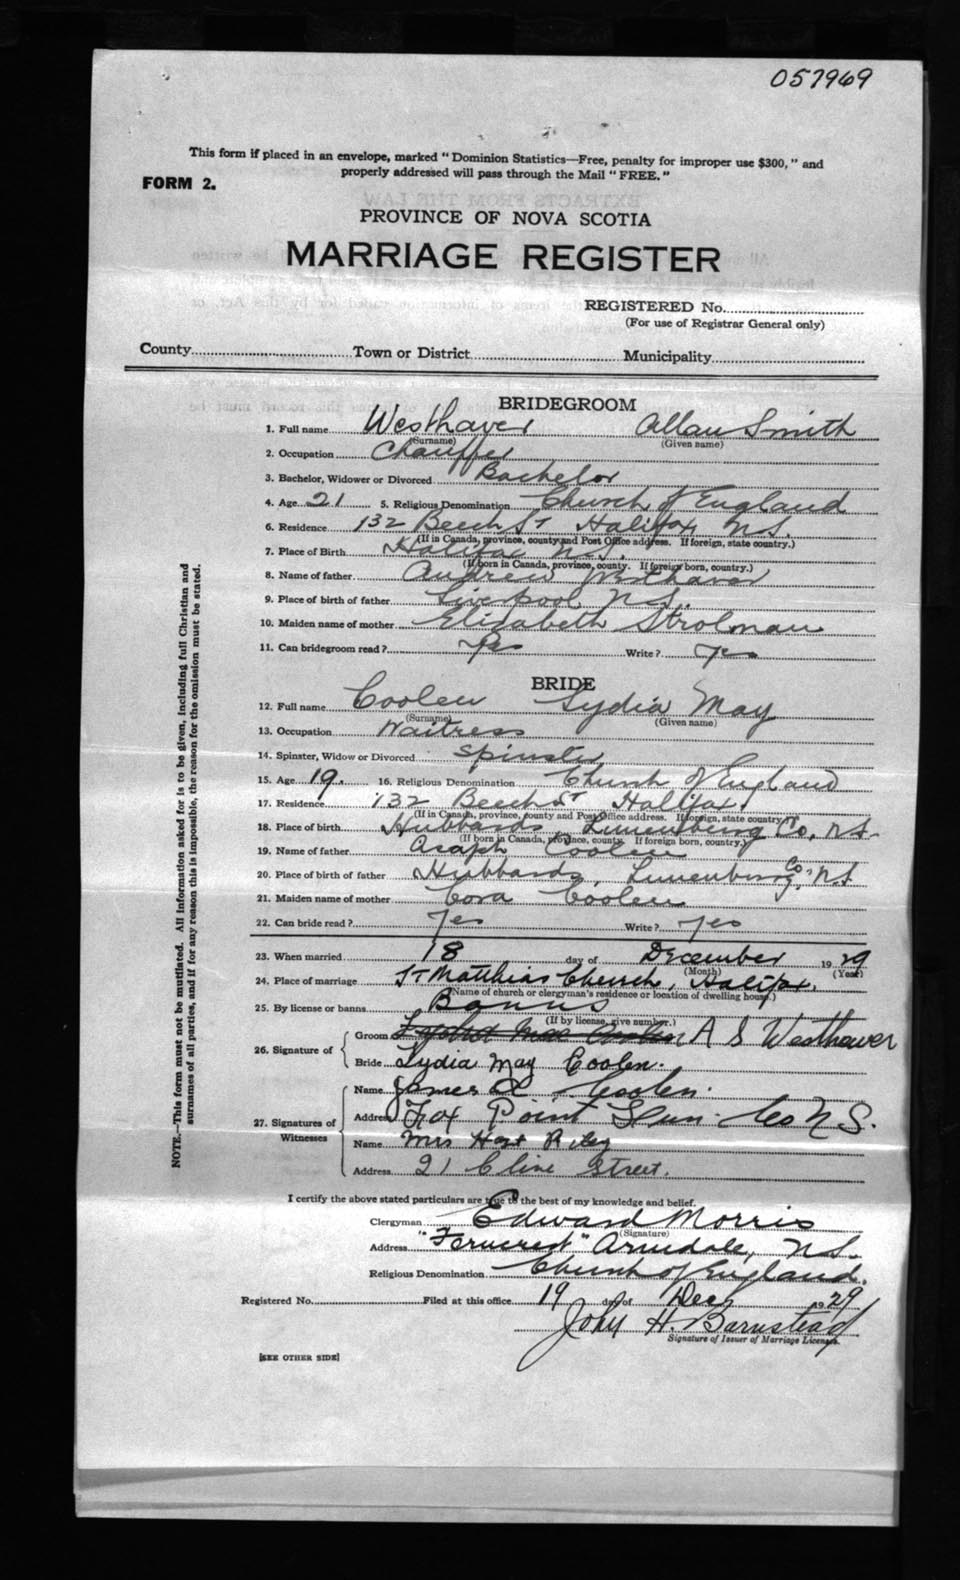 057969
This form if placed in an envelope, marked "Dominion Statistics—Free, penalty for improper use $300," and
properly addressed will pass through the Mail "FREE."
FORM 2.
PROVINCE OF NOVA SCOTIA
MARRIAGE REGISTER
REGISTERED No.
(For use of Registrar General only)
County Town or District Municipality
BRIDEGROOM
1. Full name Westhaver Allan Smith
(Surname) (Given name)
2. Occupation Chauffer
3. Bachelor, Widower or Divorced Bachelor
4. Age 21 5. Religious Denomination Church of England
6. Residence 132 Beech St Halifax N.S.
(If in Canada, province, county and Post Office address. If foreign, state country.)
7. Place of Birth Halifax N.S.
(If born in Canada, province, county. If foreign born, country.)
8. Name of father Andrew Westhaver
9. Place of birth of father Liverpool N.S.
10. Maiden name of mother Elizabeth Strolman
11. Can bridegroom read? Yes Write? Yes
BRIDE
12. Full name Coolen Lydia May
(Surname) (Given name)
13. Occupation Waitress
14. Spinster, Widow or Divorced Spinster
15. Age 19 16. Religious Denomination Church of England
17. Residence 132 Beech St Halifax
(If in Canada, province, county and Post Office address. If foreign, state country.)
18. Place of birth Hubbards Lunenburg Co, N.S.
(If born in Canada, province, county. If foreign born, country.)
19. Name of father Asaph Coolen
20. Place of birth of father Hubbards, Lunenburg Co, N.S
21. Maiden name of mother Cora Coolen
22. Can bride read? Yes Write? Yes
23. When married 18 day of December 1929
(Month) (Year)
24. Place of marriage St Matthias Church, Halifax.
(Name of church or clergyman's residence or location of dwelling house.)
25. By license or banns Banns
(If by license, give number.)
26. Signature of Groom A S Westhaver
Bride Lydia May Coolen.
27. Signatures of Witnesses Name James A. Coolen.
Address Fox Point Lun. Co N.S.
Name Mrs Hart Riley
Address 21 Cline Street.
I certify the above stated particulars are true to the best of my knowledge and belief.
Clergyman Edward Morris
(Signature)
Address "Ferncrest" Armdale, N.S.
Religious Denomination Church of England.
Registered No. Filed at this office 19 day of Dec 1929
John H. Barnstead
Signature of Issuer of Marriage Licenses.
[SEE OTHER SIDE]
NOTE.—This form must not be mutilated. All information asked for is to be given, including full Christian and
surnames of all parties, and if for any reason this is impossible, the reason for the omission must be stated.